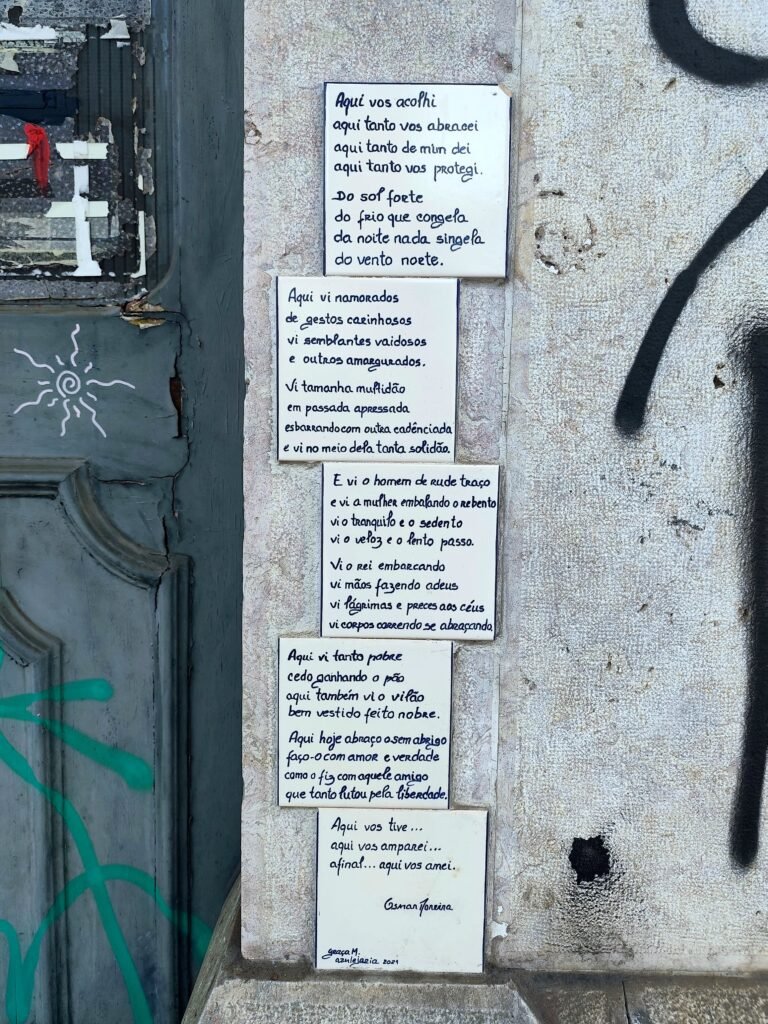 Aqui vos acolhi
aqui tanto vos abracei
aqui tanto de mim dei
aqui tanto vos protegi.
Do sol forte
do frio que congela
da noite nada singela
do vento norte.
Aqui vi namorados
de gestos carinhosos
vi semblantes vaidosos
e outros amargurados.
Vi tamanha multidão
em passada apressada
esbarrando com outra cadênciada
e vi no meio dela tanta solidão.
E vi o homem de rude traço
e vi a mulher embalando o rebento
vi o tranquilo e o sedento
vi o veloz e o lento passo.
Vi o rei embarcando
vi mãos fazendo adeus
vi lágrimas e preces aos céus
vi corpos correndo se abraçando
Aqui vi tanto pobre
cedo ganhando o pão
aqui também vi o vilão
bem vestido feito nobre.
Aqui hoje abraço o sem abrigo
faço-o com amor e verdade
como o fiz com aquele amigo
que tanto lutou pela liberdade.
Aqui vos tive...
aqui vos amparei...
afinal... aqui vos amei.
Osmar Moreira
graça M.
azulejaria 2021